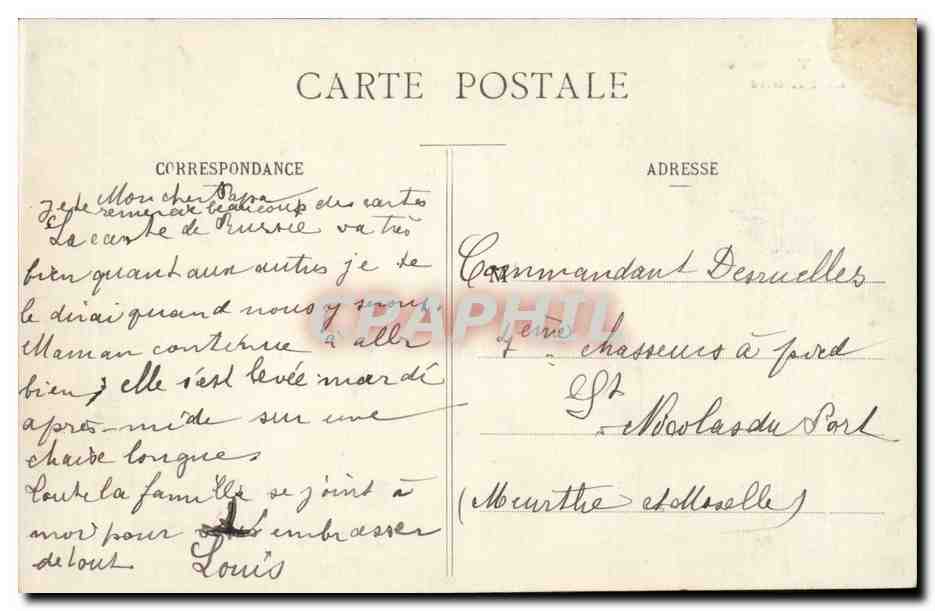 CARTE POSTALE
CORRESPONDANCE
ADRESSE
Mon cher Papa
je te remercie beaucoup des cartes
La carte de Russie va très
bien quant aux autres je te
le dirai quand nous y serons.
Maman continue à aller
bien, elle s'est levée mardi
après-midi sur une
chaise longue
Toute la famille se joint à
moi pour t embrasser
de tout
Louis
Commandant Desruelles
4ème chasseurs à pied
St
Nicolas du Port
(Meurthe et Moselle)
CPAPHIL